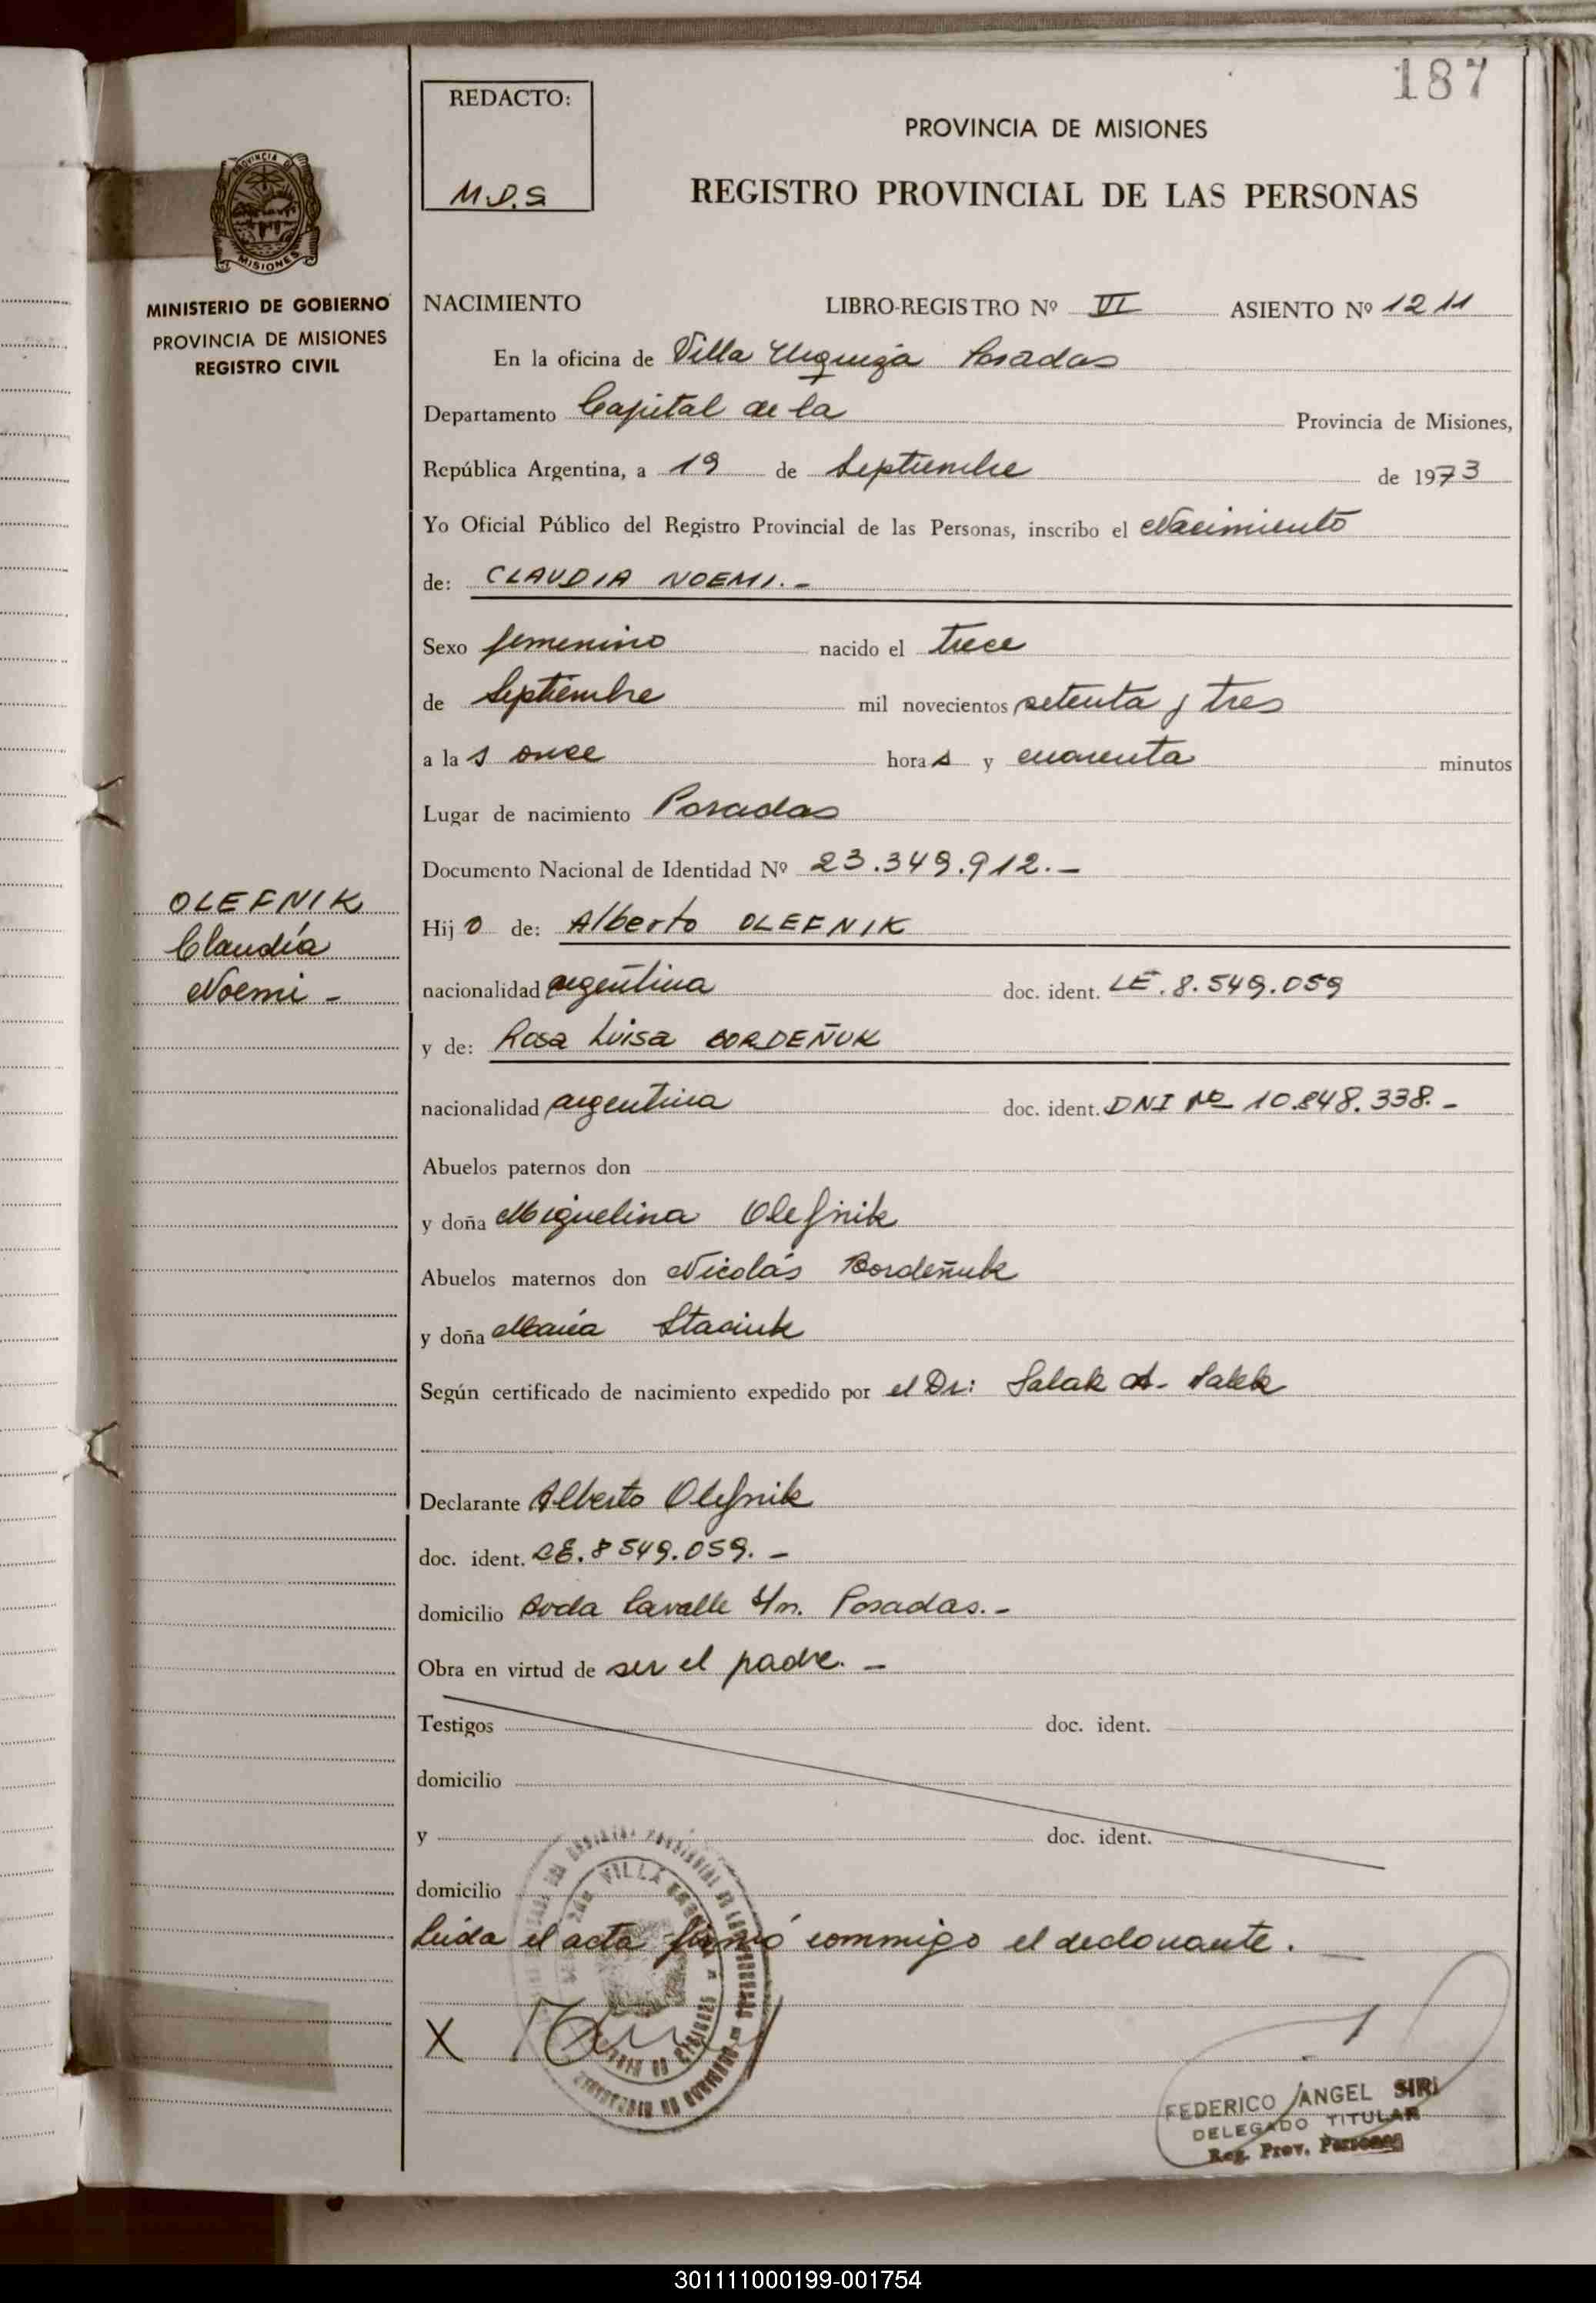 187
REDACTO:
M.D.S
PROVINCIA DE MISIONES
REGISTRO PROVINCIAL DE LAS PERSONAS
PROVINCIA DE
MISIONES
MINISTERIO DE GOBIERNO
PROVINCIA DE MISIONES
REGISTRO CIVIL
NACIMIENTO LIBRO-REGISTRO Nº VI ASIENTO Nº 1211
En la oficina de Villa Urquiza Posadas
Departamento Capital de la Provincia de Misiones,
República Argentina, a 19 de Septiembre de 1973
Yo Oficial Público del Registro Provincial de las Personas, inscribo el Nacimiento
de: CLAUDIA NOEMI.-
Sexo femenino nacido el trece
de Septiembre mil novecientos setenta y tres
a la s once hora s y cuarenta minutos
Lugar de nacimiento Posadas
Documento Nacional de Identidad Nº 23.349.912.-
OLEFNIK
Claudia
Noemi -
Hij o de: Alberto OLEFNIK
nacionalidad argentina doc. ident. LE. 8.549.059
y de: Rosa Luisa BORDEÑUK
nacionalidad argentina doc. ident. DNI Nº 10.848.338.-
Abuelos paternos don
y doña Miguelina Olefnik
Abuelos maternos don Nicolás Bordeñuk
y doña María
Según certificado de nacimiento expedido por el Dr: Salak A.
Declarante Alberto Olefnik
doc. ident. LE. 8 549.059. -
domicilio Avda Lavalle s/n. Posadas.-
Obra en virtud de ser el padre. -
Testigos doc. ident.
domicilio
y doc. ident.
domicilio
VILLA
Leida el acta firmó conmigo el declarante.
X
FEDERICO ANGEL SIRI
DELEGADO TITULAR
Reg. Prov. Personas
301111000199-001754